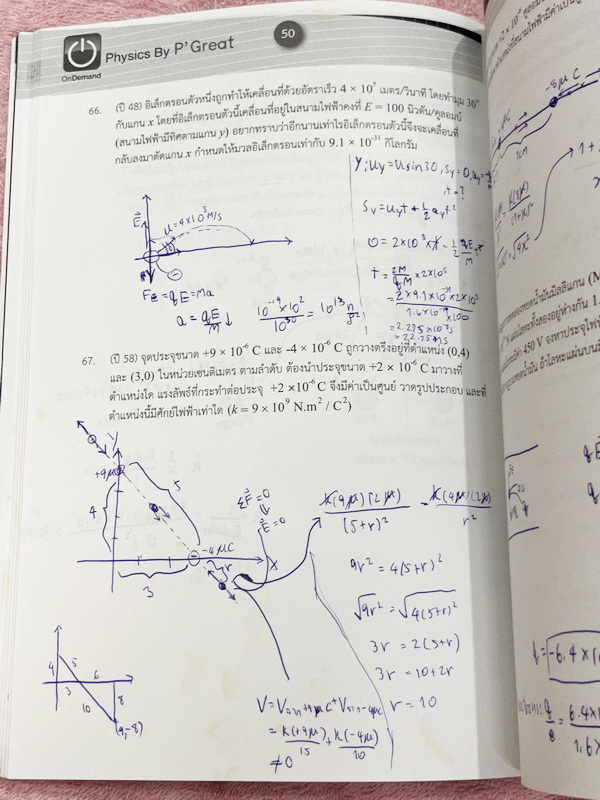 50
Physics By P'Great
OnDemand
66. (ปี 48) อิเล็กตรอนตัวหนึ่งถูกทำให้เคลื่อนที่ด้วยอัตราเร็ว 4 × 10⁵ เมตร/วินาที โดยทำมุม 30°
กับแกน x โดยที่อิเล็กตรอนตัวนี้เคลื่อนที่อยู่ในสนามไฟฟ้าคงที่ E = 100 นิวตัน/คูลอมบ์
(สนามไฟฟ้ามีทิศตามแกน y) อยากทราบว่าอีกนานเท่าไรอิเล็กตรอนตัวนี้จึงจะเคลื่อนที่
กลับลงมาตัดแกน x กำหนดให้มวลอิเล็กตรอนเท่ากับ 9.1 × 10⁻³¹ กิโลกรัม
y; uy = u sin 30, sy = 0,
t = ?
sy = uyt + ½ ayt²
u = 4×10⁵ m/s
E
0 = 2×10⁵ × t - ½ qE/M t²
t = 2M/qM × 2×10⁵
= 2×9.1×10⁻³¹×2×10⁵ / 1.6×10⁻¹⁹×100
= 2.275×10⁻⁸ s
= 22.75 ns
Fe = qE = Ma
a = qE/M ↓
10⁻¹⁹ 10² / 10³⁰ = 10¹³
67. (ปี 58) จุดประจุขนาด +9 × 10⁻⁶ C และ -4 × 10⁻⁶ C ถูกวางตรึงอยู่ที่ตำแหน่ง (0,4)
และ (3,0) ในหน่วยเซนติเมตร ตามลำดับ ต้องนำประจุขนาด +2 × 10⁻⁶ C มาวางที่
ตำแหน่งใด แรงลัพธ์ที่กระทำต่อประจุ +2 ×10⁻⁶ C จึงมีค่าเป็นศูนย์ วาดรูปประกอบ และที่
ตำแหน่งนี้มีศักย์ไฟฟ้าเท่าใด (k = 9 × 10⁹ N.m² / C²)
y
+9μ
5
4
-4μC
x
3
r
ΣF = 0
E = 0
k(9μ)(2μ) / (5+r)² = k(4μ)(2μ) / r²
9r² = 4(5+r)²
√9r² = √4(5+r)²
3r = 2(5+r)
3r = 10+2r
r = 10
4
5
3
6
10
8
(9,-8)
= k(+9μ)/15 + k(-4μ)/10
≠ 0
-8μC